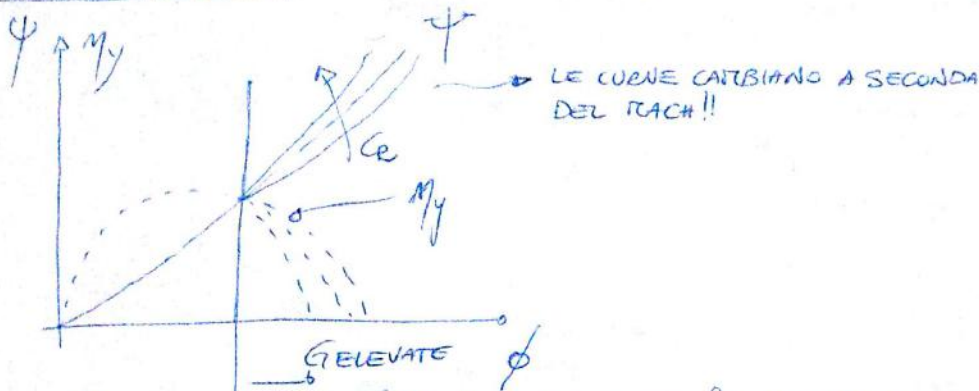 ψ ηy
ψ
→ LE CURVE CAMBIANO A SECONDA
DEL MACH!!
ηy
G ELEVATE
ϕ